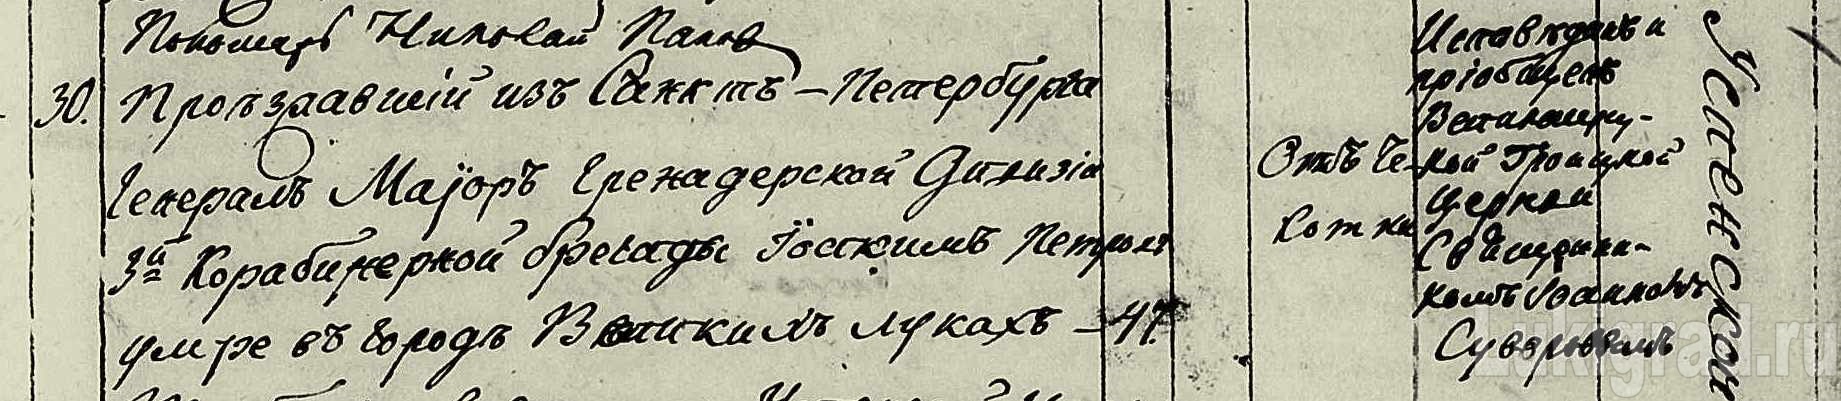 Пономарь Николай Попов
30. Проѣзжавшій изъ Санктъ-Петербурга
Генералъ Маіоръ Гренадерской Дивизіи
3й Корабинерной бригады Іоакимъ Петровъ
умре въ городѣ Великихъ Лукахъ - 47.
Отъ Че-
хотки
Исповѣданъ и
пріобщенъ
Великолу-
кой Троицкой
Церкви
Священни-
комъ Іоанномъ
Суворовымъ
Успенской
Lukigrad.ru